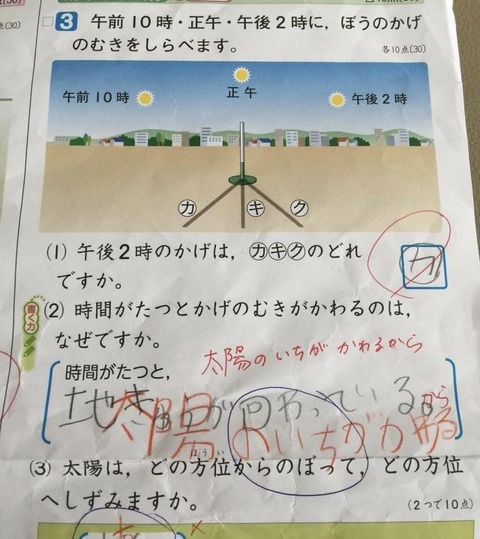 □3 午前10時・正午・午後2時に，ぼうのかげ
のむきをしらべます。
各10点(30)
午前10時
正午
午後2時
カ
キ
ク
(1) 午後2時のかげは，カキクのどれ
ですか。
カ
(2) 時間がたつとかげのむきがかわるのは，
なぜですか。
書く力
太陽のいちがかわるから
時間がたつと，
地きゅうが回わっているから
太陽のいちがかわる
(3) 太陽は，どの方位からのぼって，どの方位
ほうい
へしずみますか。
(2つで10点)